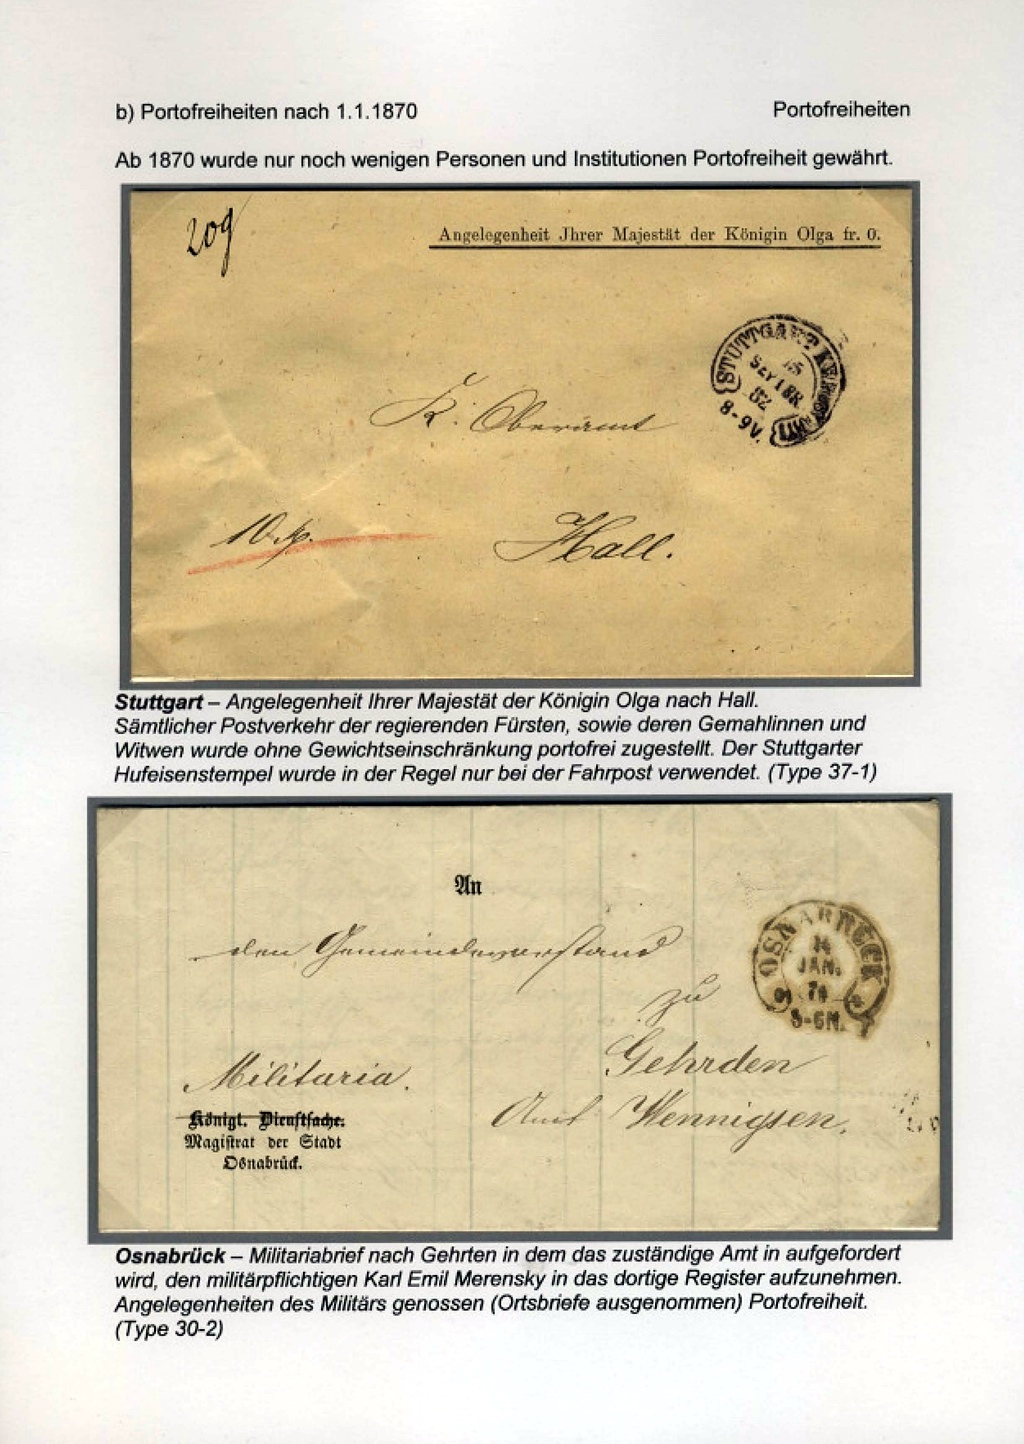 b) Portofreiheiten nach 1.1.1870
Portofreiheiten
Ab 1870 wurde nur noch wenigen Personen und Institutionen Portofreiheit gewährt.
209
Angelegenheit Jhrer Majestät der Königin Olga fr. 0.
STUTTGART
15
SEP
82
8-9V.
K. Oberamt
10.
Hall.
Stuttgart – Angelegenheit Ihrer Majestät der Königin Olga nach Hall.
Sämtlicher Postverkehr der regierenden Fürsten, sowie deren Gemahlinnen und
Witwen wurde ohne Gewichtseinschränkung portofrei zugestellt. Der Stuttgarter
Hufeisenstempel wurde in der Regel nur bei der Fahrpost verwendet. (Type 37-1)
An
den Gemeindevorstand
zu
Gehrden
Amt Wennigsen.
OSNABRUECK
14
JAN.
74
5-6N.
Militaria.
Königl. Dienstsache.
Magistrat der Stadt
Osnabrück.
Osnabrück – Militariabrief nach Gehrten in dem das zuständige Amt in aufgefordert
wird, den militärpflichtigen Karl Emil Merensky in das dortige Register aufzunehmen.
Angelegenheiten des Militärs genossen (Ortsbriefe ausgenommen) Portofreiheit.
(Type 30-2)